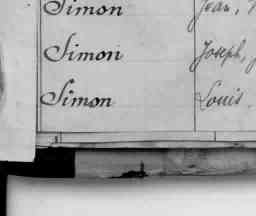 Simon Jean,
Simon Joseph,
Simon Louis